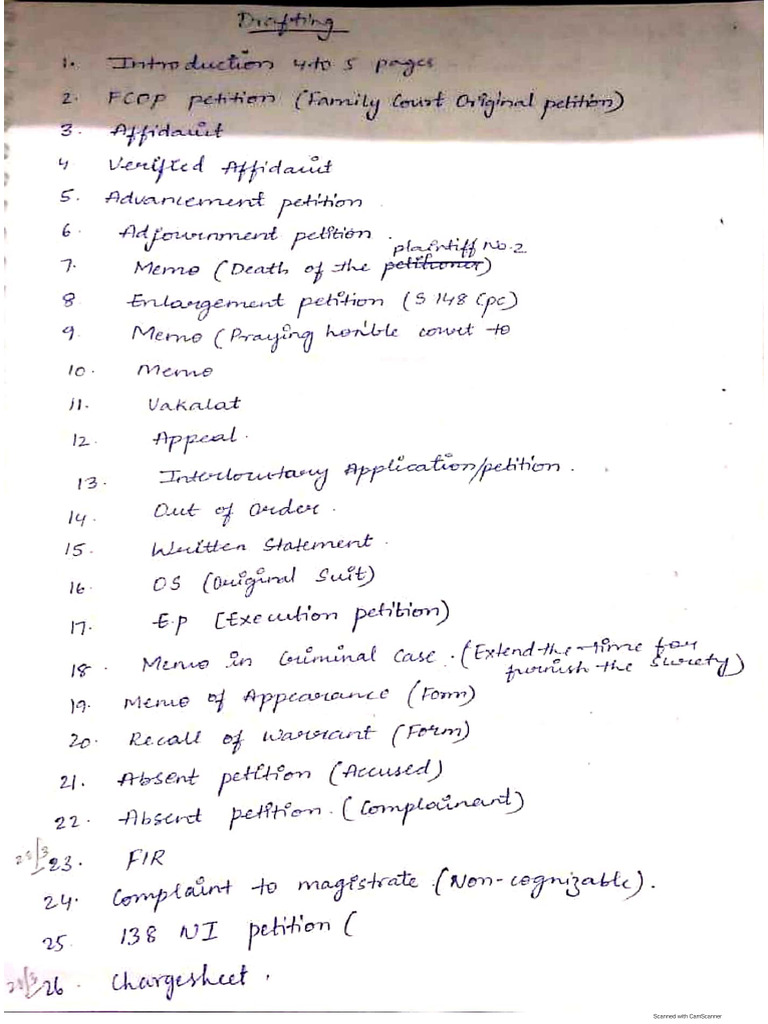 Drafting
1. Introduction 4 to 5 pages
2. FCOP petition (Family Court Original petition)
3. Affidavit
4 Verified Affidavit
5. Advancement petition.
6. Adjournment petition.
plaintiff No. 2
7. Memo (Death of the petitioner)
8 Enlargement petition (S 148 Cpc)
9. Memo (Praying hon'ble court to
10. Memo
11. Vakalat
12. Appeal.
13. Interlocutary Application/petition.
14. Out of order.
15. Written Statement.
16. OS (Original Suit)
17. E.p [Execution petition)
18. Memo in Criminal Case. (Extend the time for
furnish the Surety)
19. Memo of Appearance (Form)
20. Recall of Warrant (Form)
21. Absent petition (Accused)
22. Absent petition. (Complainant)
23. FIR
24. Complaint to magistrate (Non-cognizable).
25. 138 NI petition (
26. Chargesheet.
Scanned with CamScanner